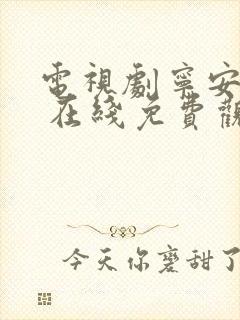 電視劇寧安
在綫免費觀
今天你磨甜了